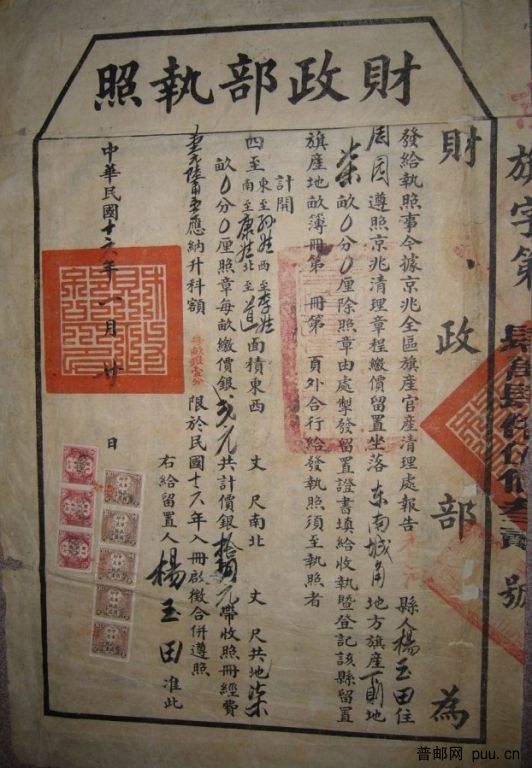 財政部執照
旗字第號
財政部為
發給執照事今據京兆全區旗產官產清理處報告 縣人楊玉田住
遵照京兆清理章程繳價留置坐落東南城角地方旗產下則地
柒畝0分0厘除照章由處掣發留置證書填給收執暨登記該縣留置
旗產地畝簿冊第 冊第 頁外合行給發執照須至執照者
計開
四至 東至孫姓 西至李姓 南至康姓 北至道 面積東西 丈 尺南北 丈 尺共地柒
畝0分0厘照章每畝繳價銀貳元共計價銀拾肆元帶收照冊經費
應納升科額 限於民國十六年入冊啟徵合併遵照
右給留置人楊玉田准此
中華民國十六年一月廿日
普邮网 puu.cn